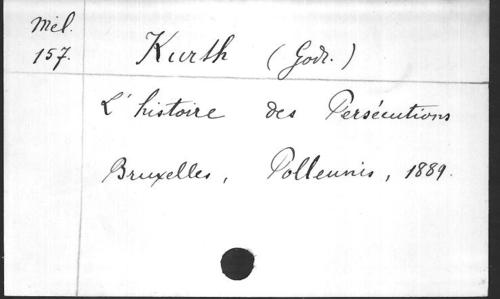 Mél.
157.
Kurth (God.)
L'histoire des Persécutions
Bruxelles, Polleunis, 1889.